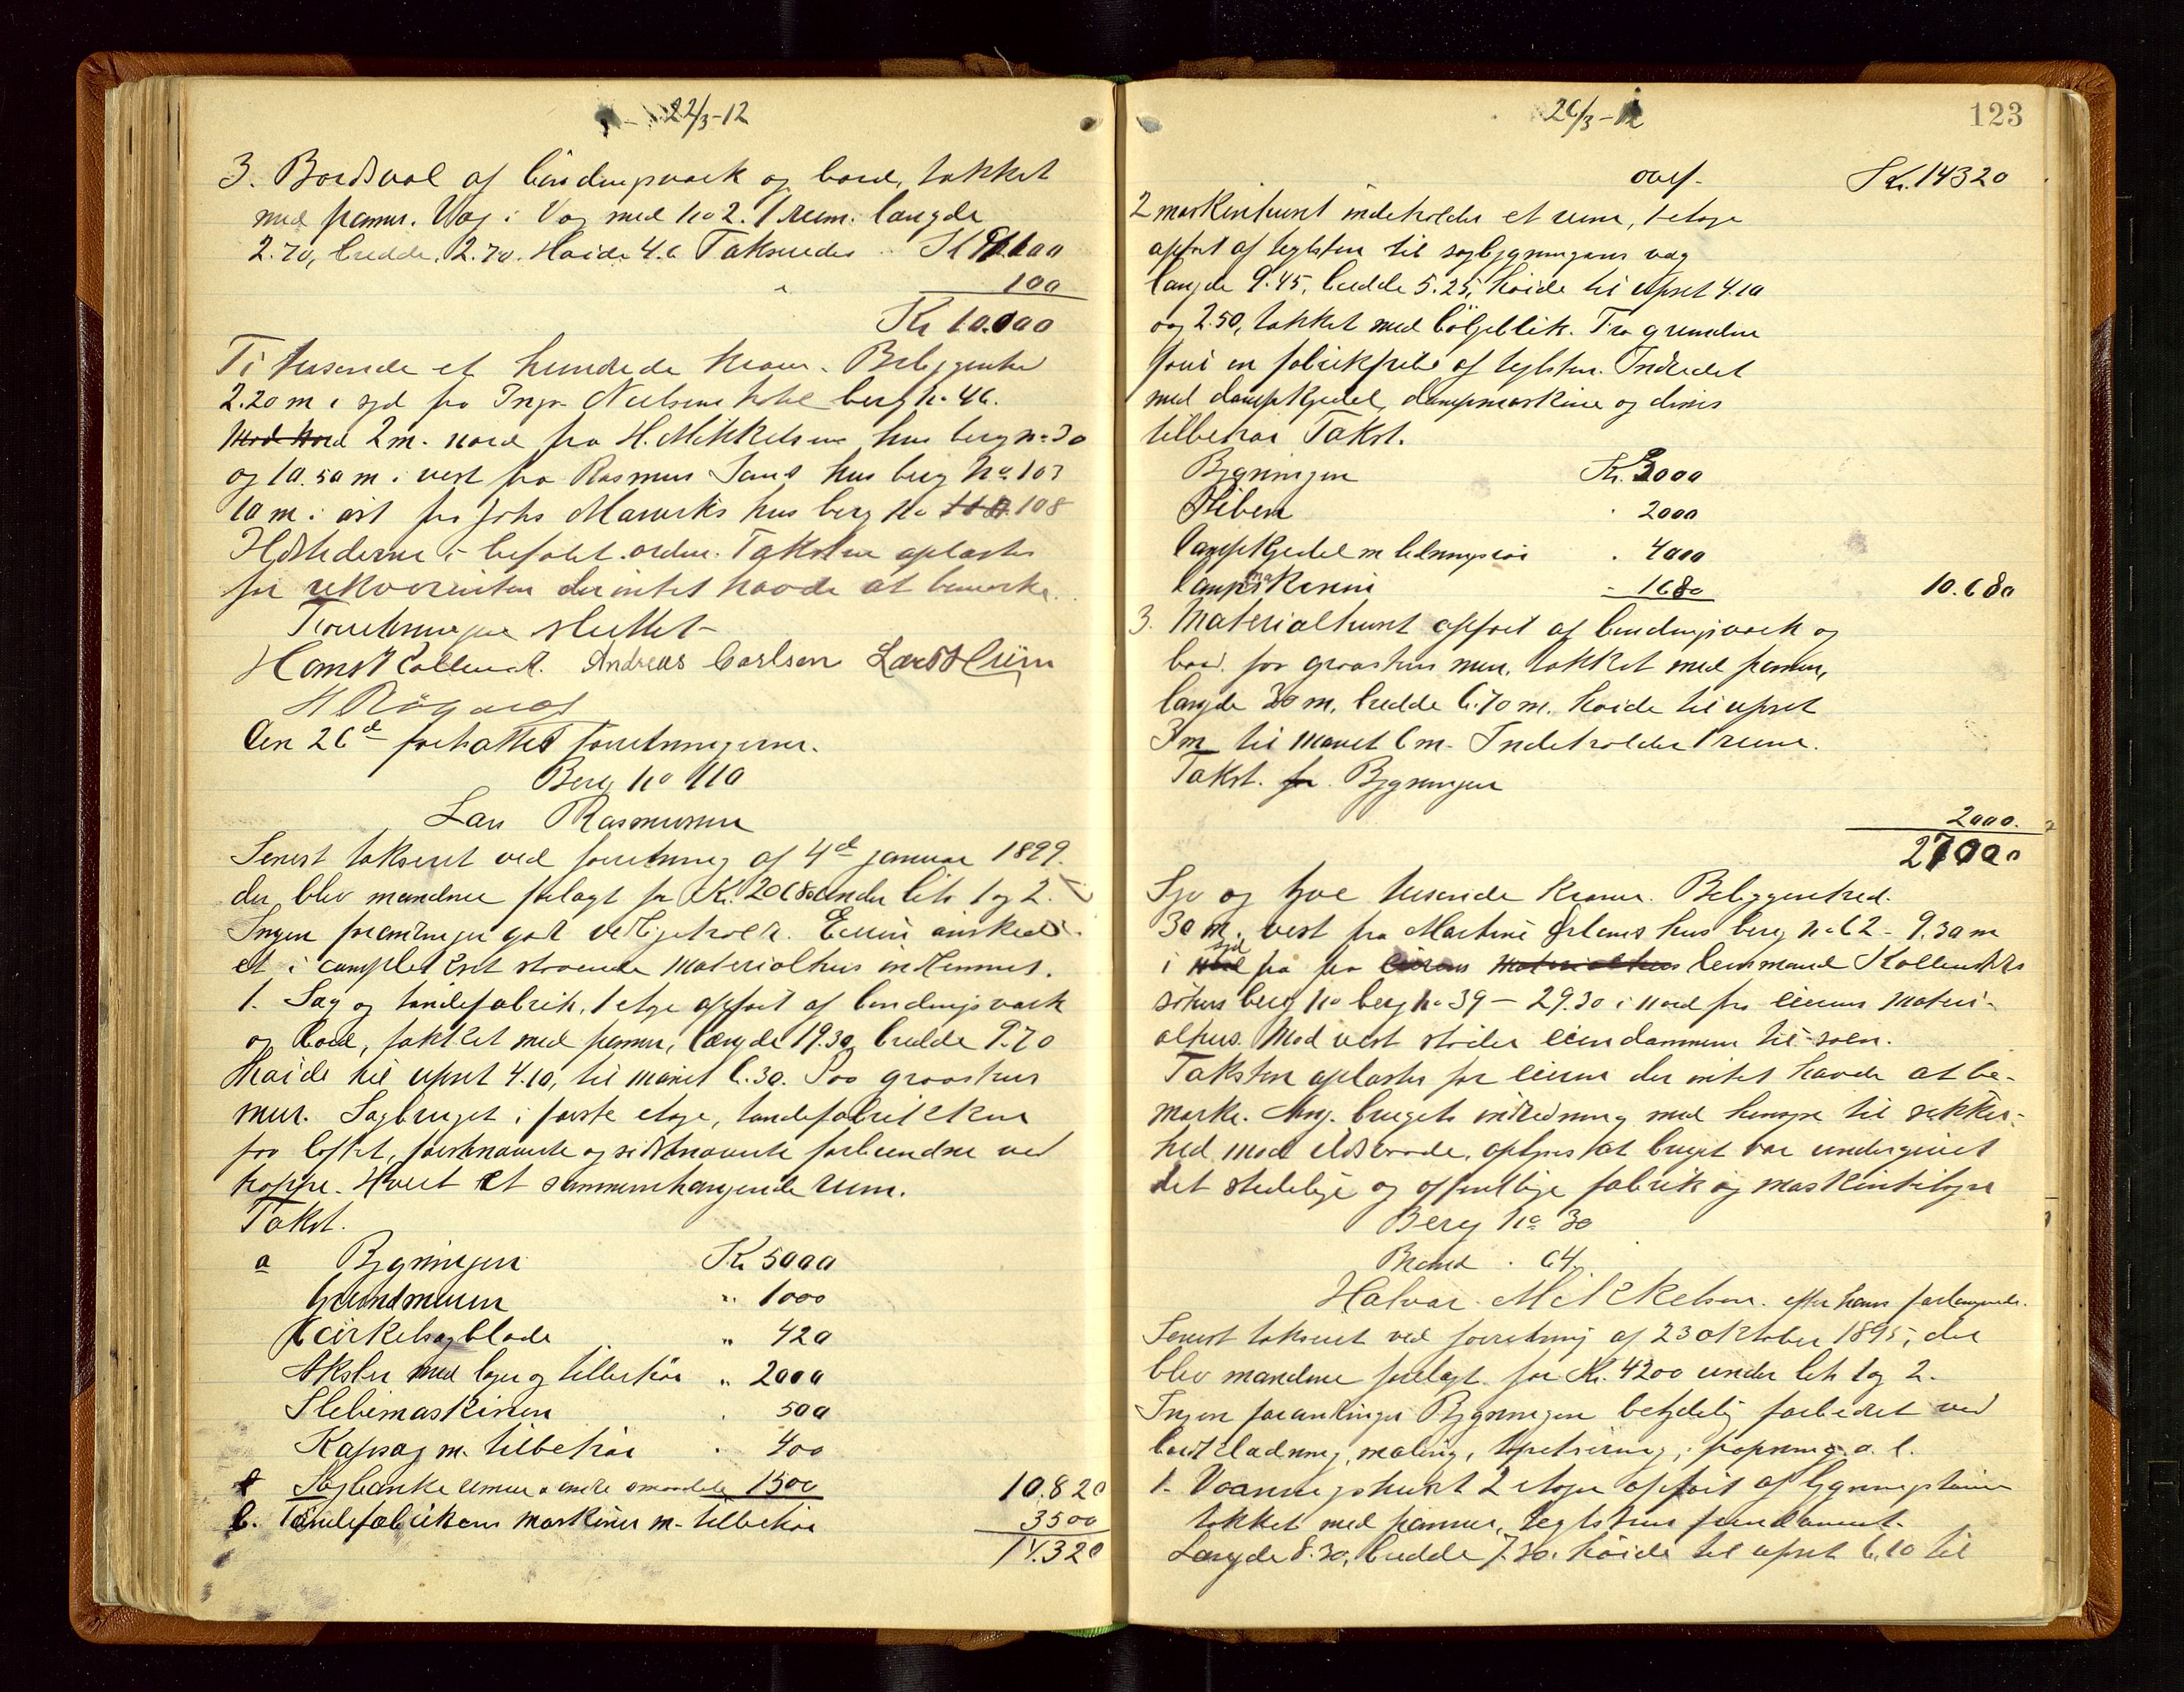 22/3-12
3. Bordsval af bindingsværk og bord, tækket
med panner. Væg i Væg med No 2. 1 rum. længde
2.70, bredde 2.70. Høide 4.6 Takseredes
100
Kr 10.000
Ti tusende et hundrede kroner. Beliggenhed
2.20 m i syd fra Ingr. Nielsens hotel berg No 46.
Mod Nord 2 m. nord fra H. Mikkelsens hus berg No 30
og 10.50 m i vest fra Rasmus hus berg No 107
10 m i øst fra Johs hus berg No 108
Ildstederne i befalet orden. Taksten oplæstes
for rekvirenten der intet havde at bemærke.
Forretningen sluttet
Andreas Carlsen
Den 26d fortsattes forretningerne.
Berg No 110
Lars Rasmussen
Senest takseret ved forretning af 4d januar 1899.
der blev mandene forelagt for Kr. 20680 under litr 1 og 2.
Ingen forandringer god vedligeholdt. Eieren ønskede
et i complet stand staaende materialhus indlemmet.
1. Sag og tøndefabrik, 1 etage opført af bindingsværk
og bord, tækket med panner, længde 19.30, bredde 9.70
Høide til upset 4.10, til mønet 6.30. Paa graastens
mur. Sagbruget i første etage, tøndefabrikken
paa loftet, førstnævnte og sidstnævnte forbundne ved
trappe. Hvert et sammenhængende rum.
Takst.
a Bygningen Kr 5000
Grundmuren " 1000
Cirkelsagblade " 420
Aksler med lager og tilbehør " 2000
Slebemaskinen . 500
Kapsag m. tilbehør . 400
Sagbænke remmer o andre smaadele 1500 10.820
b. Tøndefabrikens maskiner m. tilbehør 3500
14.320
26/3-12
123
overf. Kr. 14320
2 maskinhuset indeholder et rum, 1 etage
opført af teglsten til sagbygningens væg
længde 9.45, bredde 5.25, høide til upset 4.10
og 2.50, tækket med bølgeblik. Fra grunden
fører en fabrikpibe af teglsten. Indredet
med dampkjedel, dampmaskine og dens
tilbehør Takst.
Bygningen Kr. 3000
Piben . 2000
Dampkjedel m ledningsrør . 4000
Dampmaskinen - 1680 10.680
3. Materialhuset opført af bindingsværk og
bord paa graastens mur, tækket med panner,
længde 30 m, bredde 6.70 m. høide til upset
3 m til mønet 6 m. Indeholder 1 rum.
Takst. for Bygningen
2000.
27000
Syv og tyve tusende kroner. Beliggenhed.
30 m. vest fra Martin hus berg No 62 - 9.30 m
i syd fra fra eierens materialhus lensmand
søhus berg No berg No 39 - 29.30 i nord fra eierens materi-
alhus. Mod vest støder eiendommene til søen.
Taksten oplæstes for eieren der intet havde at be-
mærke. Ang. brugets indredning med hensyn til sikker-
hed mod ildsvaade, oplystes at bruget var undergivet
det stedlige og offentlige fabrik og maskintilsyn
Berg No 30
Brand . 64.
Halvor Mikkelsen. efter hans forlangende.
Senest takseret ved forretning af 23 oktober 1895, der
blev mandene forelagt for Kr. 4200 under litr 1 og 2.
Ingen forandringer Bygningen betydelig forbedret ved
bordklædning, maling, tapetsering, papning o. l.
1. Vaaningshuset 2 etager opført af bygningstømmer
tækket med panner, teglstens fundament.
Længde 8.30, bredde 7.30, høide til upset 6.10 til